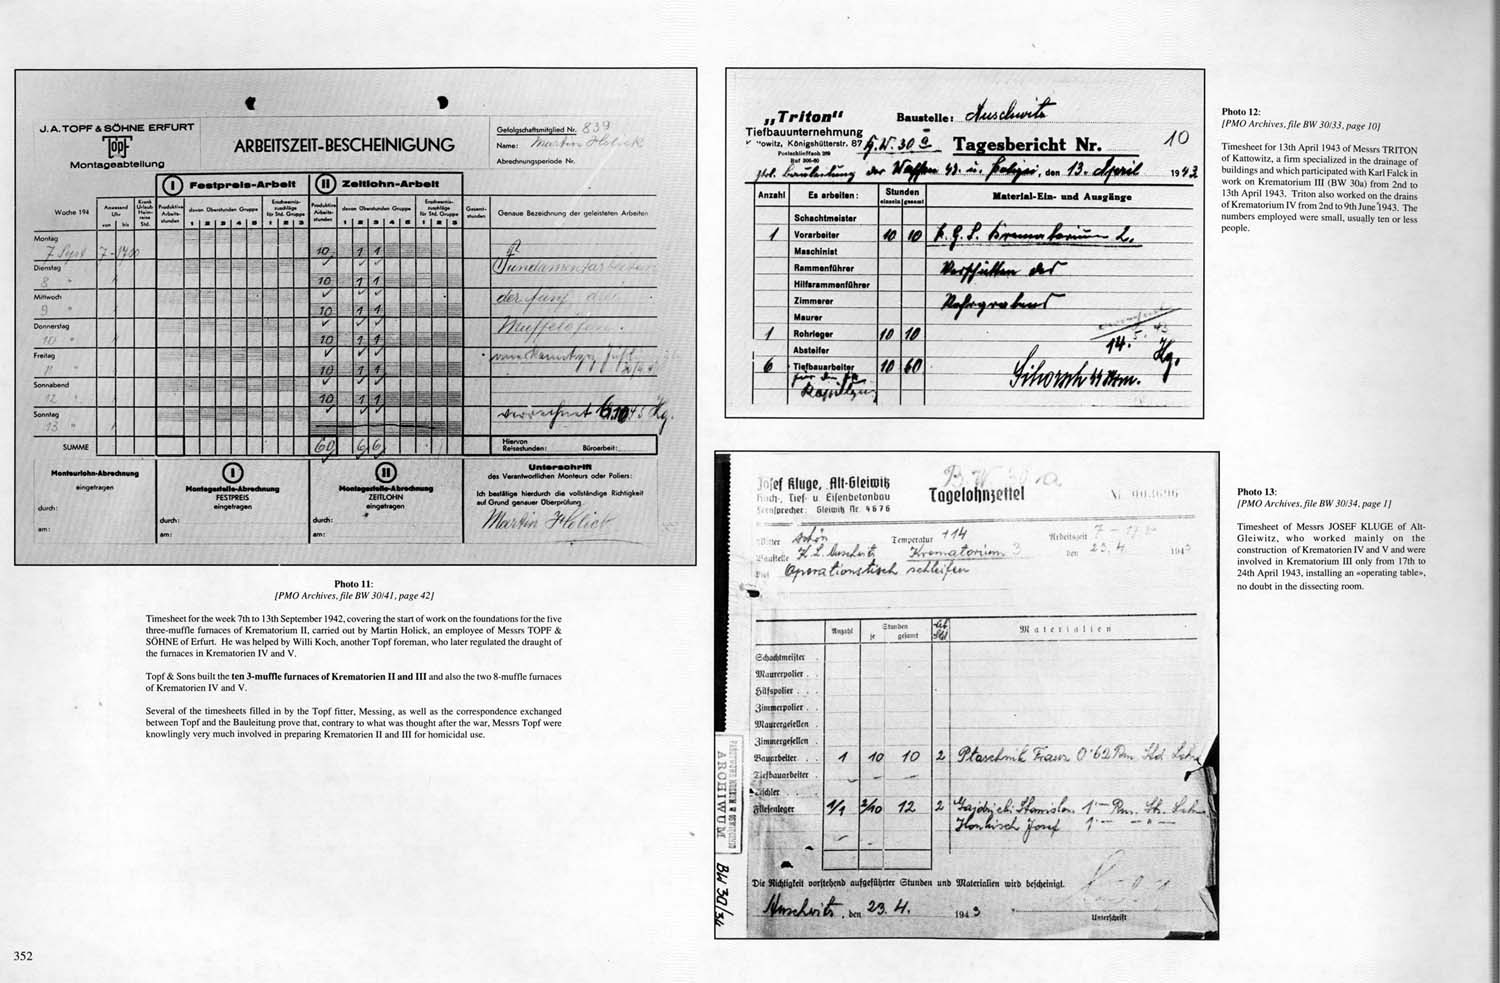 J. A. TOPF & SÖHNE ERFURT
Topf
Montageabteilung
ARBEITSZEIT-BESCHEINIGUNG
Gefolgschaftsmitglied Nr. 839
Name: Martin Holick
Abrechnungsperiode Nr.
I Festpreis-Arbeit
II Zeitlohn-Arbeit
Woche 194
Anwesend Uhr
von bis
Krank Urlaub Heimreise Std.
Produktive Arbeitsstunden
davon Überstunden Gruppe
1 2 3 4 5
Erschwerniszuschläge für Std. Gruppe
1 2 3
Produktive Arbeitsstunden
davon Überstunden Gruppe
1 2 3 4 5
Erschwerniszuschläge für Std. Gruppe
1 2 3
Gesamtstunden
Genaue Bezeichnung der geleisteten Arbeiten
Montag
7. Sept 7-1700 10 1 1
Dienstag
8 " 10 1 1 Fundamentarbeiten
Mittwoch
9 " 10 1 1 der fünf drei
Donnerstag
10 " 10 1 1 Muffelöfen.
Freitag
11 " 10 1 1
Sonnabend
12 " 10 1 1
Sonntag
13 " verrechnet
SUMME 60 6 6
Hiervon Reisestunden: Büroarbeit:
Monteurlohn-Abrechnung
eingetragen
durch:
am:
I
Montagestelle-Abrechnung
FESTPREIS
eingetragen
durch:
am:
II
Montagestelle-Abrechnung
ZEITLOHN
eingetragen
durch:
am:
Unterschrift
des Verantwortlichen Monteurs oder Poliers:
Ich bestätige hierdurch die vollständige Richtigkeit
auf Grund genauer Überprüfung.
Martin Holick
Photo 11:
[PMO Archives, file BW 30/41, page 42]
Timesheet for the week 7th to 13th September 1942, covering the start of work on the foundations for the five
three-muffle furnaces of Krematorium II, carried out by Martin Holick, an employee of Messrs TOPF &
SÖHNE of Erfurt. He was helped by Willi Koch, another Topf foreman, who later regulated the draught of
the furnaces in Krematorien IV and V.
Topf & Sons built the ten 3-muffle furnaces of Krematorien II and III and also the two 8-muffle furnaces
of Krematorien IV and V.
Several of the timesheets filled in by the Topf fitter, Messing, as well as the correspondence exchanged
between Topf and the Bauleitung prove that, contrary to what was thought after the war, Messrs Topf were
knowlingly very much involved in preparing Krematorien II and III for homicidal use.
352
„Triton"
Tiefbauunternehmung
Königshütterstr. 87
Baustelle: Auschwitz
B.W. 30 a
Tagesbericht Nr. 10
der Waffen SS. u. Polizei, den 13. April 1943
Anzahl
Es arbeiten:
Stunden
einzeln gesamt
Material-Ein- und Ausgänge
Schachtmeister
1 Vorarbeiter 10 10 K. G. L. Krematorium 2.
Maschinist
Rammenführer Verschütten des
Hilfsrammenführer
Zimmerer Rohrgrabens
Maurer
1 Rohrleger 10 10
Absteifer 14. 5. 43
6 Tiefbauarbeiter 10 60
Photo 12:
[PMO Archives, file BW 30/33, page 10]
Timesheet for 13th April 1943 of Messrs TRITON
of Kattowitz, a firm specialized in the drainage of
buildings and which participated with Karl Falck in
work on Krematorium III (BW 30a) from 2nd to
13th April 1943. Triton also worked on the drains
of Krematorium IV from 2nd to 9th June 1943. The
numbers employed were small, usually ten or less
people.
B. W. 30 a
Josef Kluge, Alt-Gleiwitz
Hoch-, Tief- u. Eisenbetonbau
Fernsprecher: Gleiwitz Nr. 4676
Tagelohnzettel
Wetter schön Temperatur +14 Arbeitszeit 7 –
Baustelle K. L. Auschwitz Krematorium 3 den 23. 4 1943
Operationstisch schleifen
Anzahl
Stunden
je gesamt
Materialien
Schachtmeister .
Maurerpolier . .
Hilfspolier . . .
Zimmerpolier . .
Maurergesellen .
Zimmergesellen .
Bauarbeiter . . 1 10 10 2 Ptaschnik Franz 0·62 Rm
Tiefbauarbeiter .
Tischler . . .
Fliesenleger 1/1 2/10 12 2
Josef
Die Richtigkeit vorstehend aufgeführter Stunden und Materialien wird bescheinigt.
Auschwitz, den 23. 4. 1943
Unterschrift
ARCHIWUM
BW 30/34
Photo 13:
[PMO Archives, file BW 30/34, page 1]
Timesheet of Messrs JOSEF KLUGE of Alt-
Gleiwitz, who worked mainly on the
construction of Krematorien IV and V and were
involved in Krematorium III only from 17th to
24th April 1943, installing an «operating table»,
no doubt in the dissecting room.